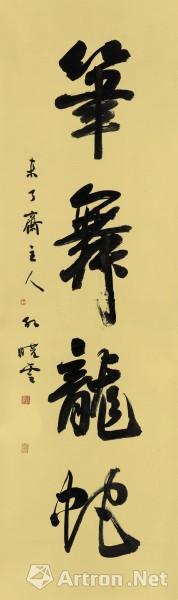 筆舞龍蛇
未了齋主人 孔曉雲
Artron.Net